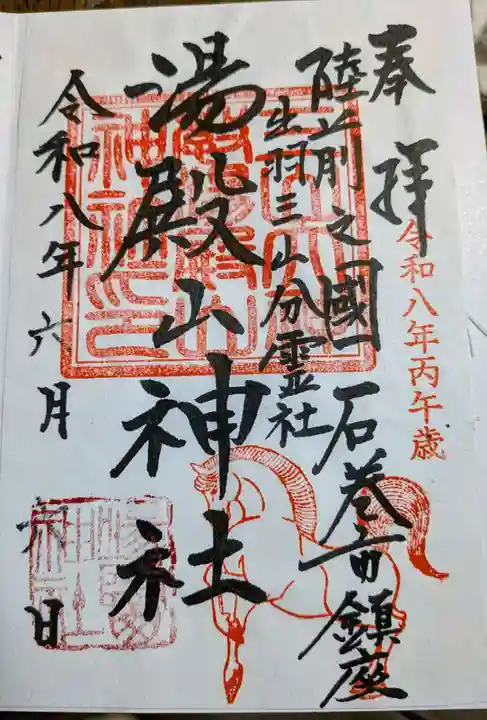 奉拝
令和八年丙午歳
陸前之國石巻市鎮座
出羽三山分霊社
湯殿山神社
令和八年六月六日